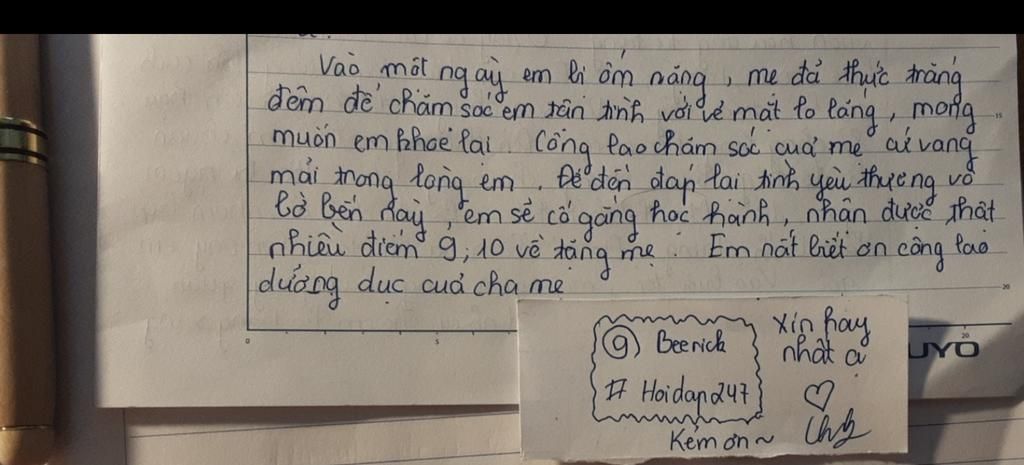 Vào một ngày em bị ốm nặng, mẹ đã thực trắng
đêm để chăm sóc em tận tình với vẻ mặt lo lắng, mong
muốn em khoẻ lại. Công lao chăm sóc của mẹ cứ vang
mãi trong lòng em. Để đền đáp lại tình yêu thương vô
bờ bến này, em sẽ cố gắng học hành, nhận được thật
nhiều điểm 9, 10 về tặng mẹ. Em rất biết ơn công lao
dưỡng dục của cha mẹ
15
20
0
5
20
UYO
9 Beerick
# Hoidap247
Kém ơn~
xin hay
nhất ạ
♡